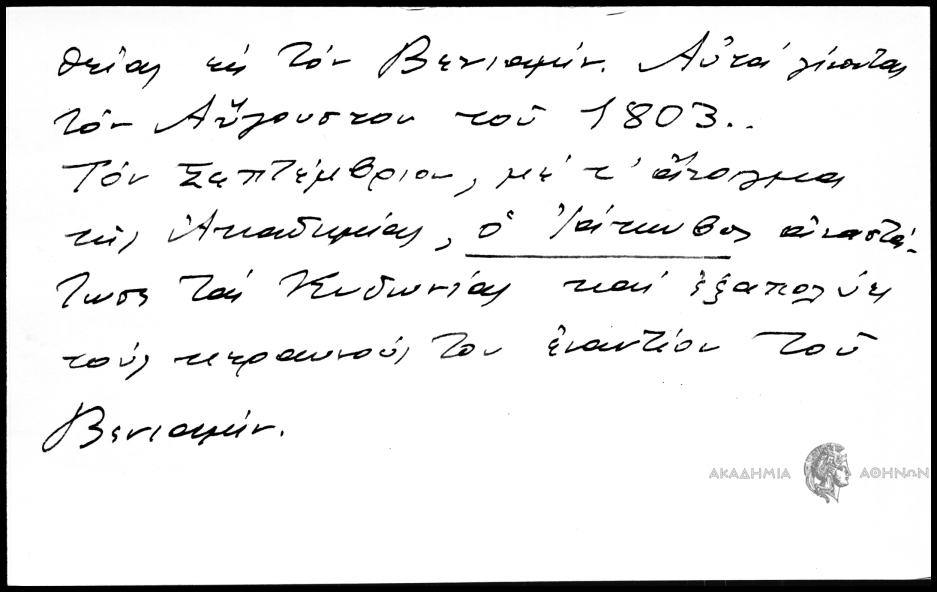 θείας εἰς τόν Βενιαμίν. Αὐτά γίνονται
τόν Αὔγουστον τοῦ 1803..
Τόν Σεπτέμβριον, μέ τ' ἄνοιγμα
τῆς Ἀκαδημίας, ὁ Ἰάκωβος ἀναστά-
τωσε τάς Κυδωνίας καί ἐξαπολύει
τούς κεραυνούς του ἐναντίον τοῦ
Βενιαμίν.
ΑΚΑΔΗΜΙΑ ΑΘΗΝΩΝ